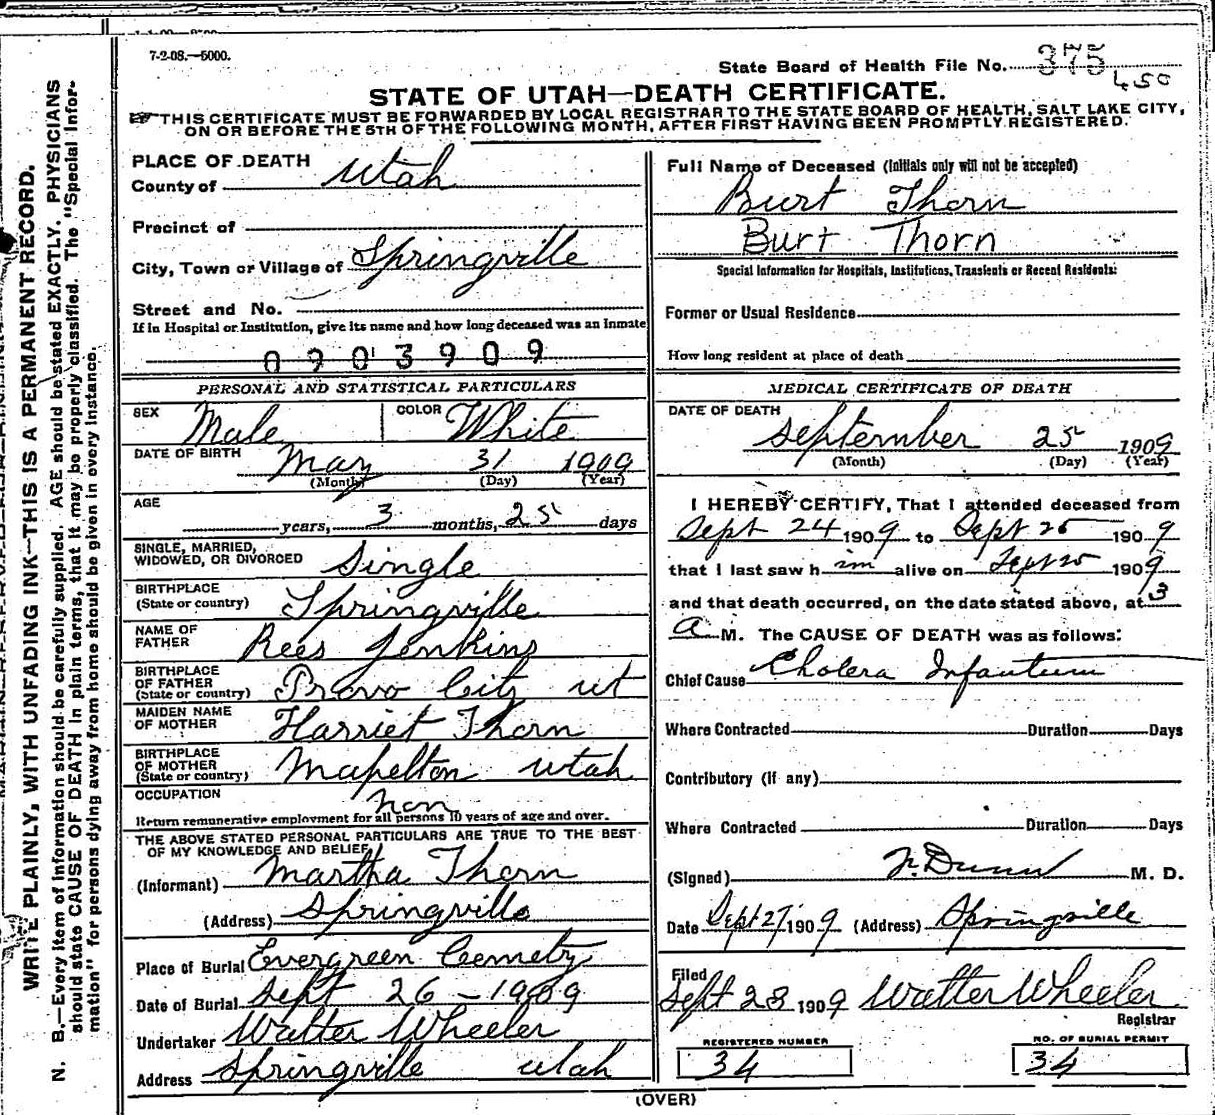 7-2-08.—5000.
State Board of Health File No. 375
450
STATE OF UTAH—DEATH CERTIFICATE.
THIS CERTIFICATE MUST BE FORWARDED BY LOCAL REGISTRAR TO THE STATE BOARD OF HEALTH, SALT LAKE CITY,
ON OR BEFORE THE 5TH OF THE FOLLOWING MONTH, AFTER FIRST HAVING BEEN PROMPTLY REGISTERED.
PLACE OF DEATH
County of Utah
Precinct of
City, Town or Village of Springville
Street and No.
If in Hospital or Institution, give its name and how long deceased was an inmate
0903909
PERSONAL AND STATISTICAL PARTICULARS
SEX Male COLOR White
DATE OF BIRTH May 31 1909
(Month) (Day) (Year)
AGE
years, 3 months, 25 days
SINGLE, MARRIED,
WIDOWED, OR DIVORCED Single
BIRTHPLACE
(State or country) Springville
NAME OF
FATHER Rees Jenkins
BIRTHPLACE
OF FATHER
(State or country) Provo City ut
MAIDEN NAME
OF MOTHER Harriet Thorn
BIRTHPLACE
OF MOTHER
(State or country) Mapelton utah
OCCUPATION non
Return remunerative employment for all persons 10 years of age and over.
THE ABOVE STATED PERSONAL PARTICULARS ARE TRUE TO THE BEST
OF MY KNOWLEDGE AND BELIEF
(Informant) Martha Thorn
(Address) Springville
Place of Burial Evergreen Cemetry
Date of Burial Sept 26 - 1909
Undertaker Walter Wheeler
Address Springville utah
Full Name of Deceased (Initials only will not be accepted)
Burt Thorn
Burt Thorn
Special Information for Hospitals, Institutions, Transients or Recent Residents:
Former or Usual Residence
How long resident at place of death
MEDICAL CERTIFICATE OF DEATH
DATE OF DEATH
September 25 1909
(Month) (Day) (Year)
I HEREBY CERTIFY, That I attended deceased from
Sept 24 1909 to Sept 25 1909
that I last saw him alive on Sept 25 1909
and that death occurred, on the date stated above, at 3
a M. The CAUSE OF DEATH was as follows:
Chief Cause Cholera Infantum
Where Contracted Duration Days
Contributory (if any)
Where Contracted Duration Days
(Signed) F. Dunn M. D.
Date Sept 27 1909 (Address) Springville
Filed
Sept 28 1909 Walter Wheeler
Registrar
REGISTERED NUMBER
34
NO. OF BURIAL PERMIT
34
(OVER)
WRITE PLAINLY, WITH UNFADING INK—THIS IS A PERMANENT RECORD.
N. B.—Every item of information should be carefully supplied. AGE should be stated EXACTLY. PHYSICIANS
should state CAUSE OF DEATH in plain terms, that it may be properly classified. The "Special Infor-
mation" for persons dying away from home should be given in every instance.